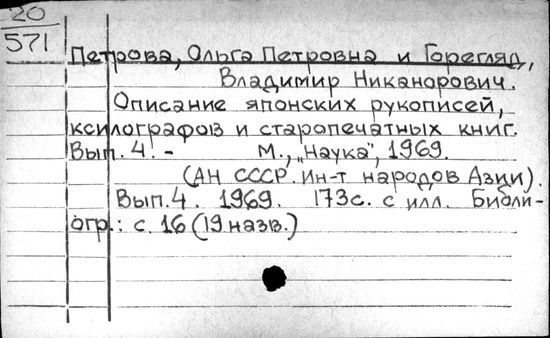 20
571
Петрова, Ольга Петровна и Горегляд,
Владимир Никанорович.
Описание японских рукописей,
ксилографов и старопечатных книг.
Вып. 4. - М., „Наука", 1969.
(АН СССР. Ин-т народов Азии).
Вып. 4. 1969. 173с. с илл. Библи-
огр.: с. 16 (19 назв.)